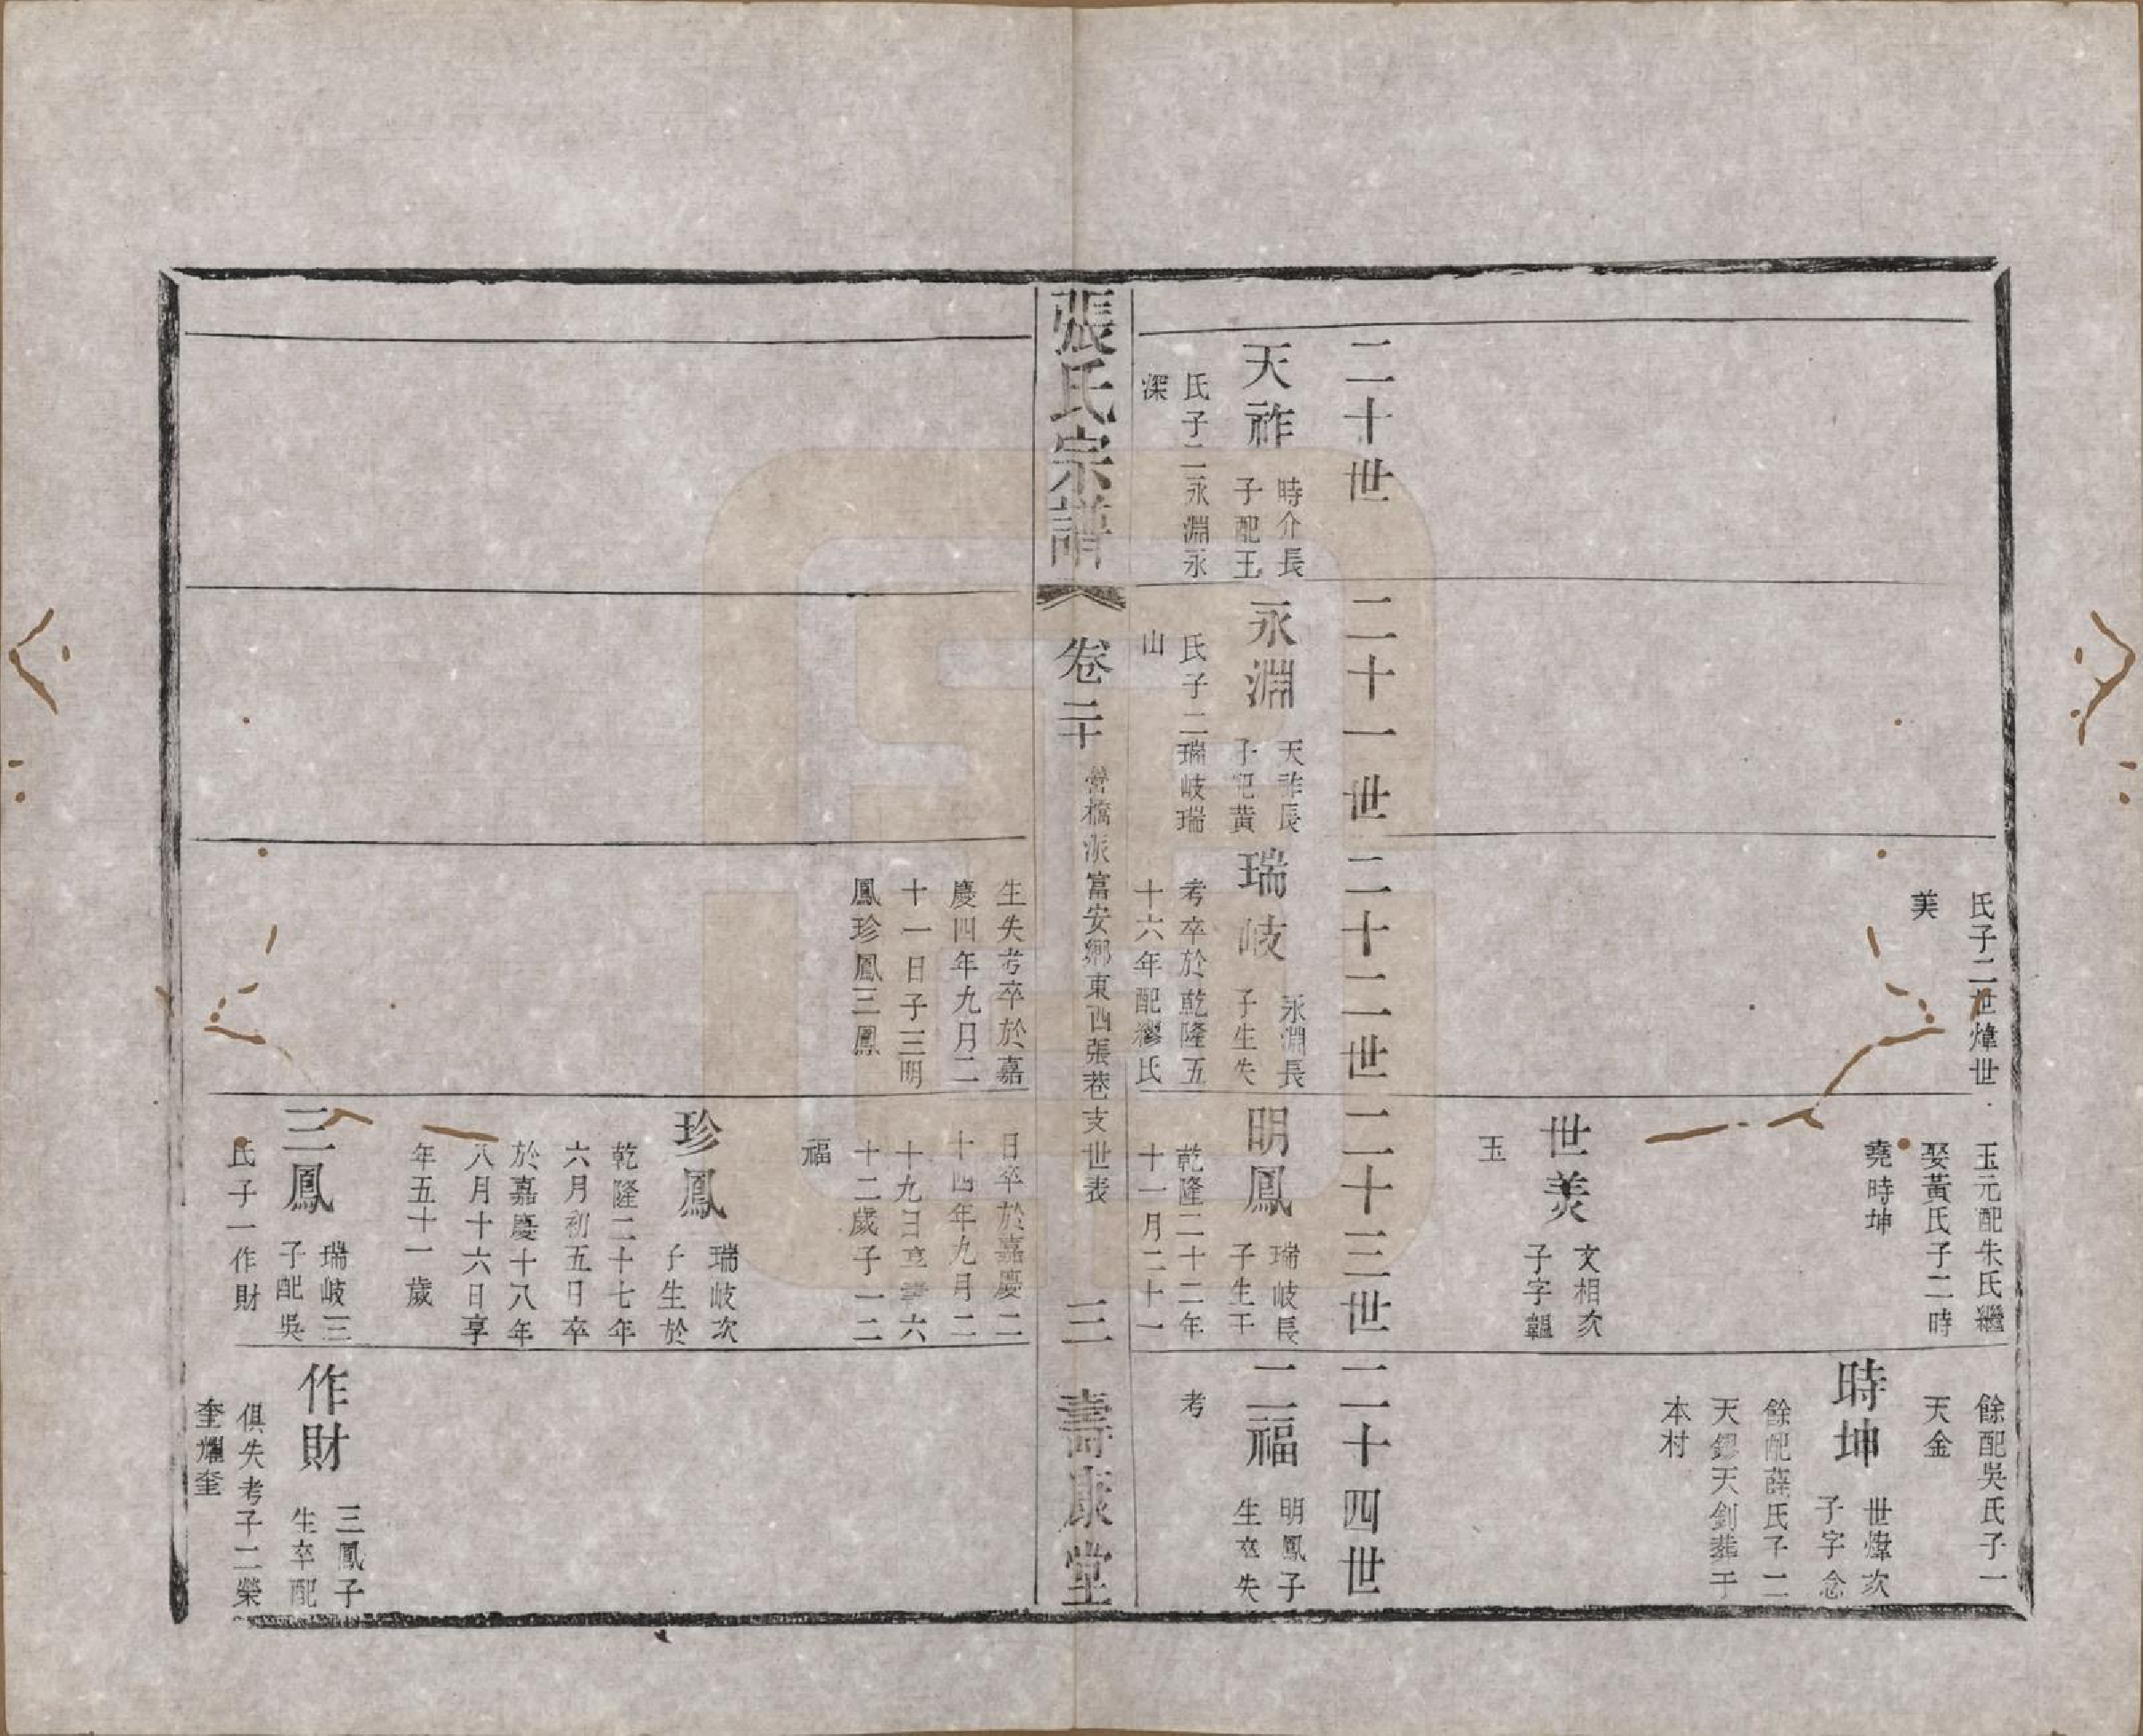 氏子二世煒世
美
玉元配朱氏繼
娶黃氏子二時
堯時坤
世美
文相次
子字韞
玉
餘配吳氏子一
天金
時坤
世煒次
子字念
餘配薛氏子二
天鏐天釗葬于
本村
二十世
天祚
時介長
子配王
氏子二永淵永
深
二十一世
永淵
天祚長
子配黃
氏子二瑞岐瑞
山
二十二世
瑞岐
永淵長
子生失
考卒於乾隆五
十六年配繆氏
二十三世
明鳳
瑞岐長
子生于
乾隆二十二年
十一月二十一
二十四世
二福
明鳳子
生卒失
考
張氏宗譜
卷二十
營橋派富安鄉東西張巷支世表
三
壽康堂
生失考卒於嘉
慶四年九月二
十一日子三明
鳳珍鳳三鳳
日卒於嘉慶二
十四年九月二
十九日享壽六
十二歲子一二
福
珍鳳
瑞岐次
子生於
乾隆二十七年
六月初五日卒
於嘉慶十八年
八月十六日享
年五十一歲
三鳳
瑞岐三
子配吳
氏子一作財
作財
三鳳子
生卒配
俱失考子二榮
奎耀奎